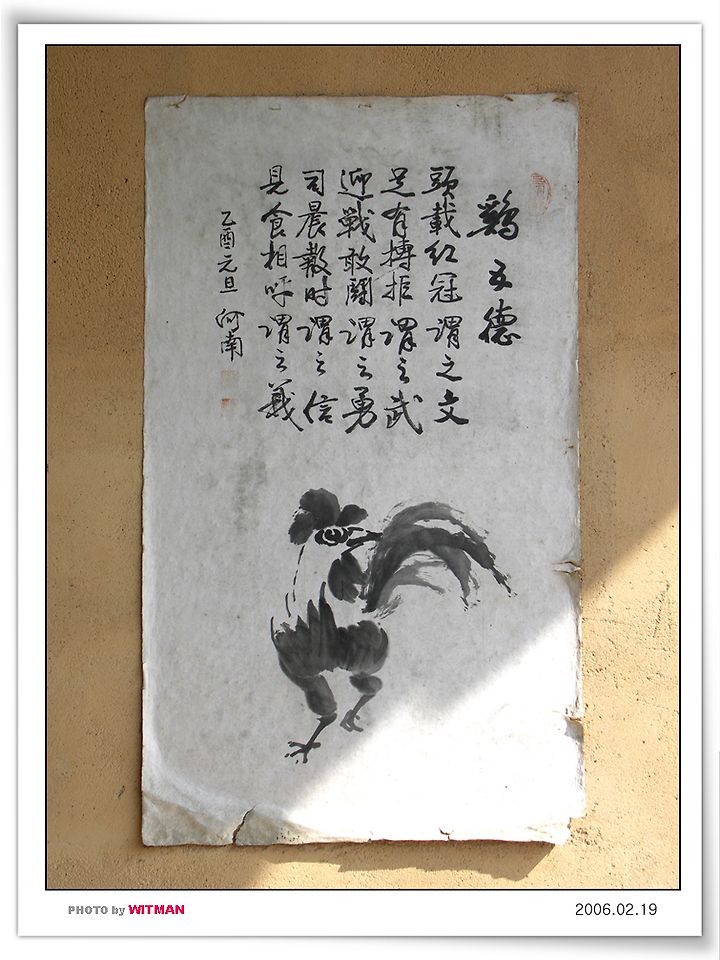 鷄五德
頭載紅冠謂之文
足有搏拒謂之武
迎戰敢鬪謂之勇
司晨報时謂之信
見食相呼謂之義
乙酉元旦 何南
PHOTO by WITMAN
2006.02.19